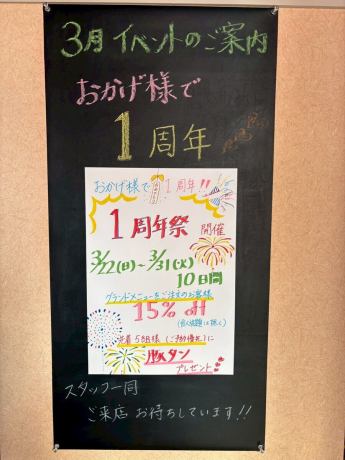 3月 イベントのご案内
おかげ様で
1 周年
おかげ様で 1周年!!
1周年祭 開催
3/22(日)~3/31(火)
10日間
グランドメニューをご注文のお客様
15% off
(食べ放題は除く)
先着5組様(ご予約優先)に
豚タン
プレゼント
スタッフ一同
ご来店 お待ちしています!!